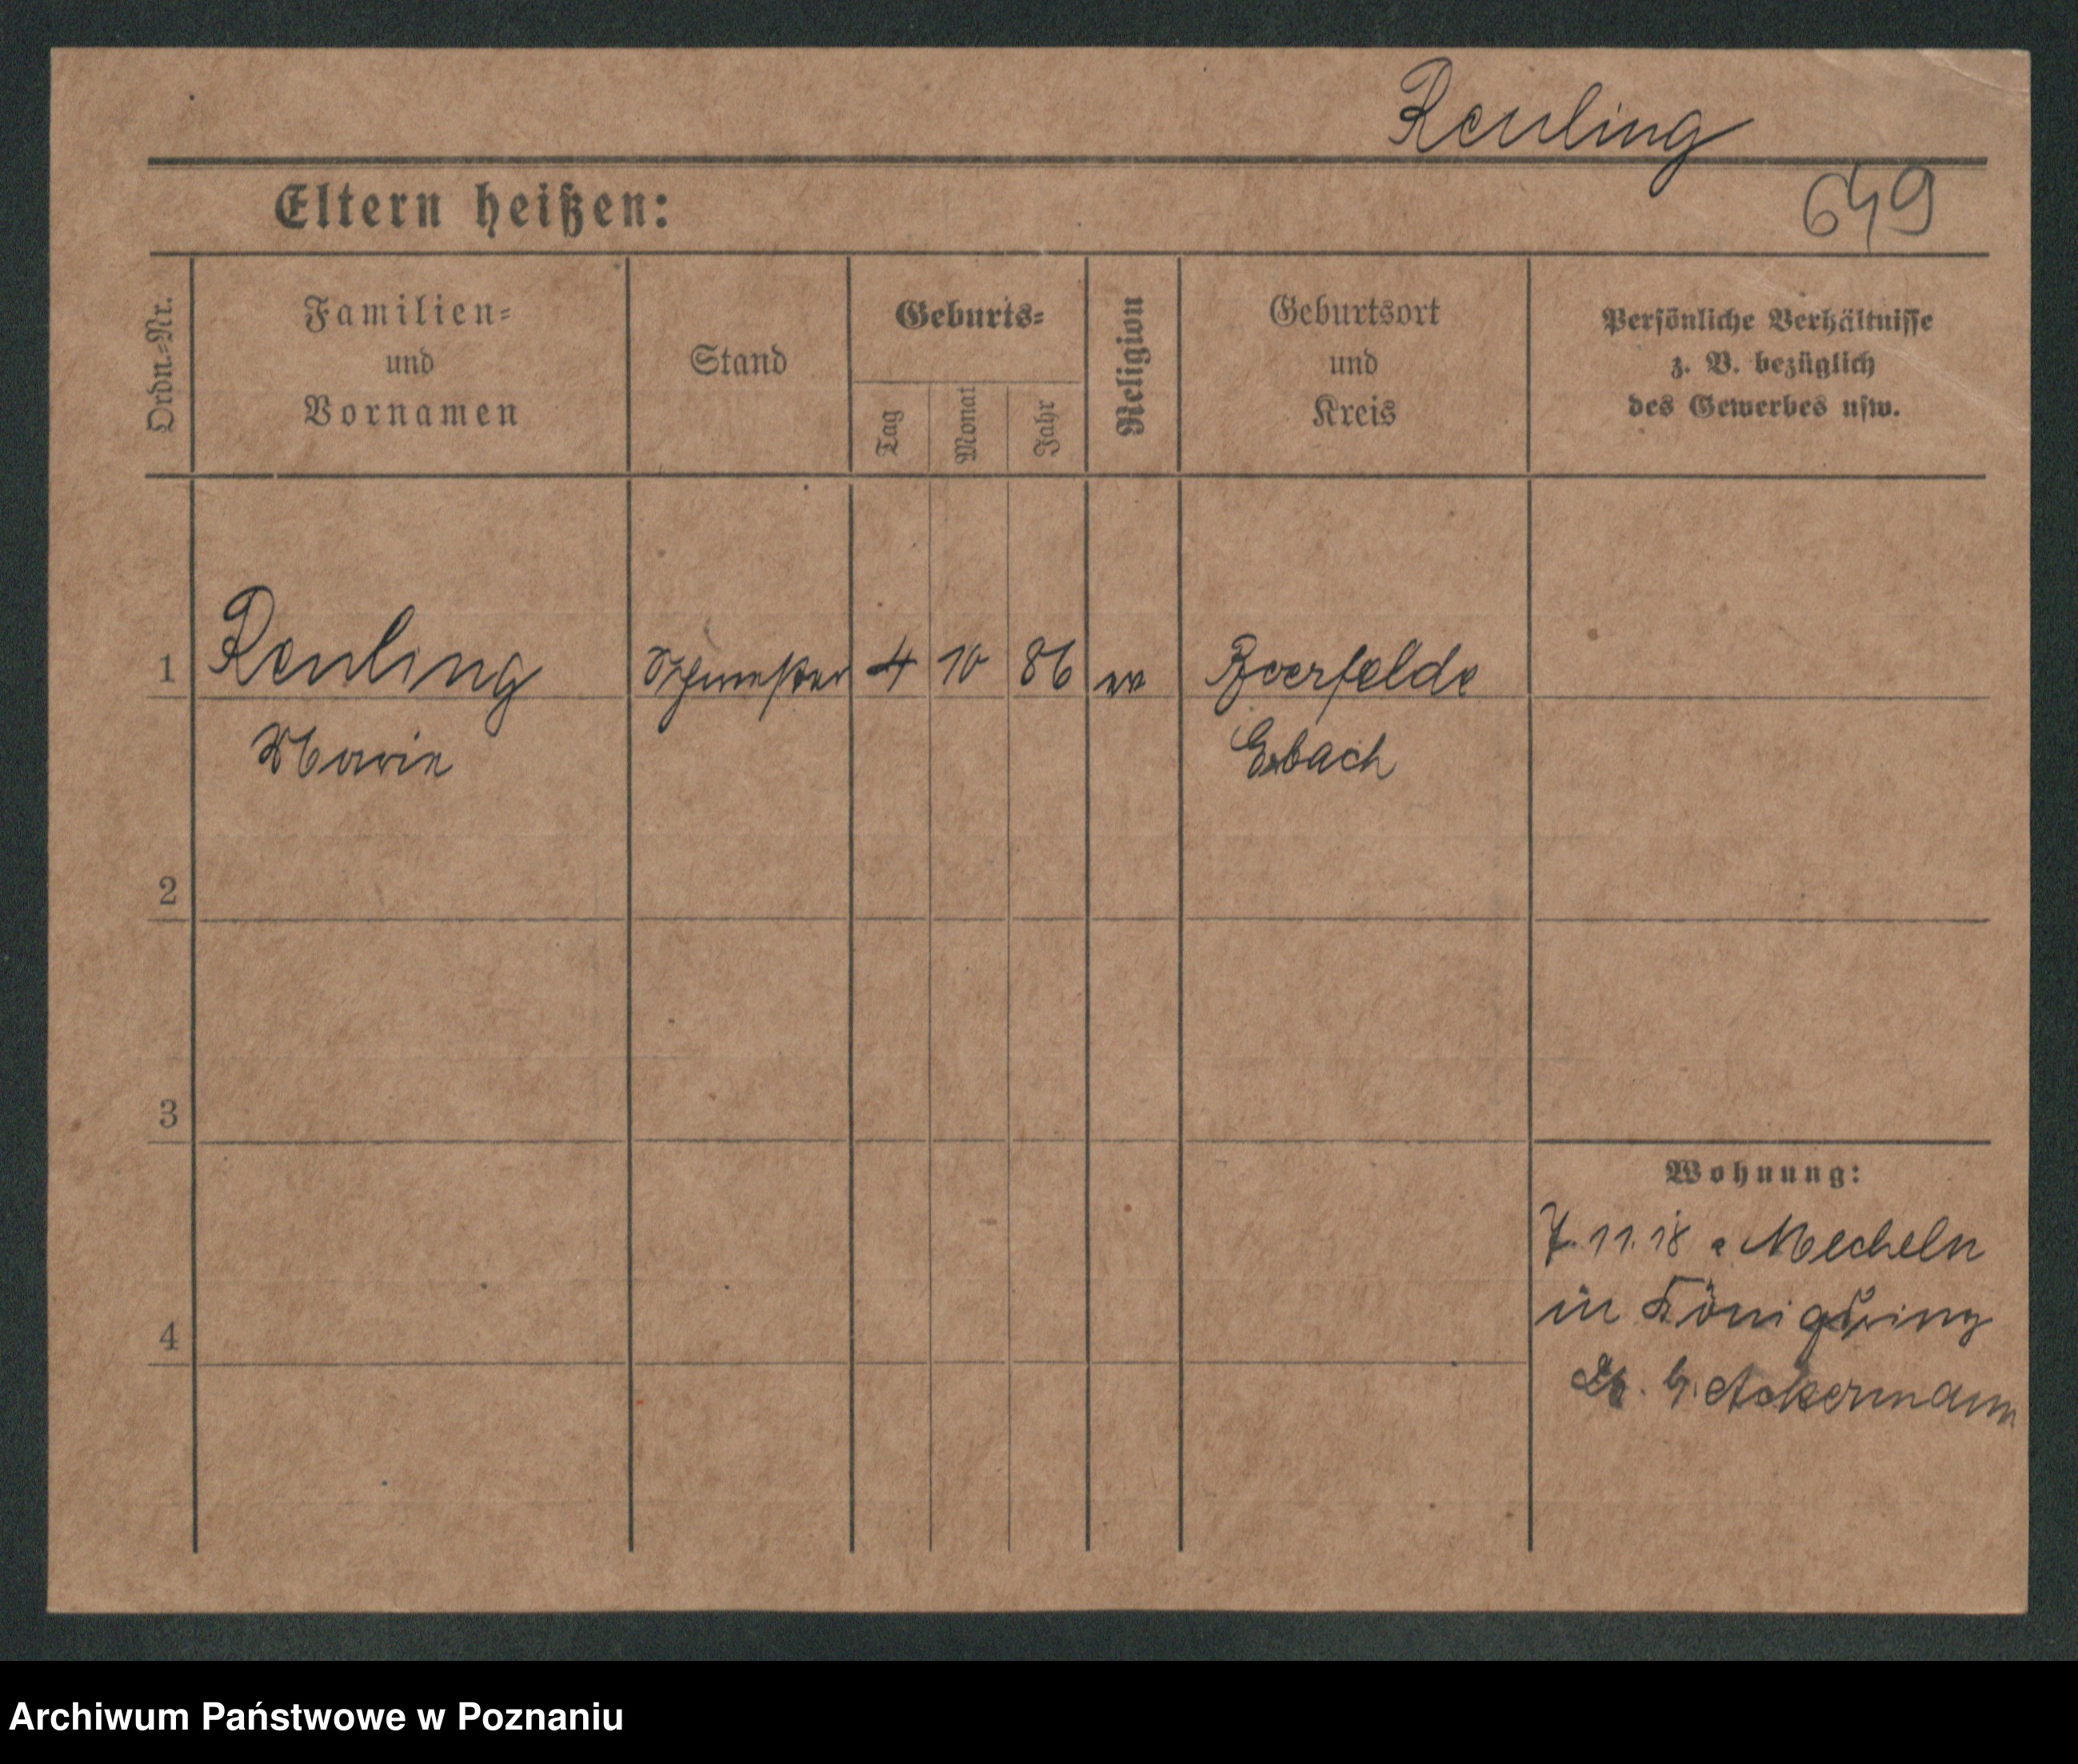 Reuling
Eltern heißen:
649
Ordn.-Nr.
Familien-
und
Vornamen
Stand
Geburts-
Tag
Monat
Jahr
Religion
Geburtsort
und
Kreis
Persönliche Verhältnisse
z. B. bezüglich
des Gewerbes usw.
1
Reuling
Schwester
4
10
86
ev
Beerfelde
Marie
Erbach
2
3
Wohnung:
7.11.18 a Mecheln
in Königsring
4
b. Ackermann
Archiwum Państwowe w Poznaniu